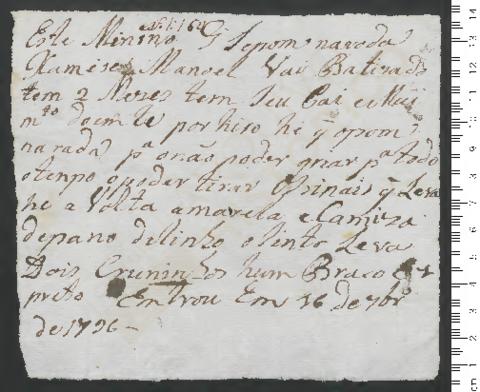 Este Minino q̃ se pom na roda
Xamise Manoel Vai Batizado
tem 2 Mezes tem seu Pai e Mãi
m.to doemte por hiso he q̃ o pom
na rada p.a o não poder criar p.a todo
o tenpo o poder tirar Os sinais q̃ Leva
he a Volta amarela e Camiza
de pano de linho o sinto Leva
Dois Cruninhos hum Braco e
preto Entrou Em 16 de 7br
de 1796